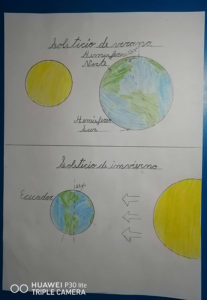 Solsticio de verano
Hemisferio
Norte
Hemisferio
Sur
Solsticio de invierno
Ecuador
HUAWEI P30 lite
TRIPLE CAMERA